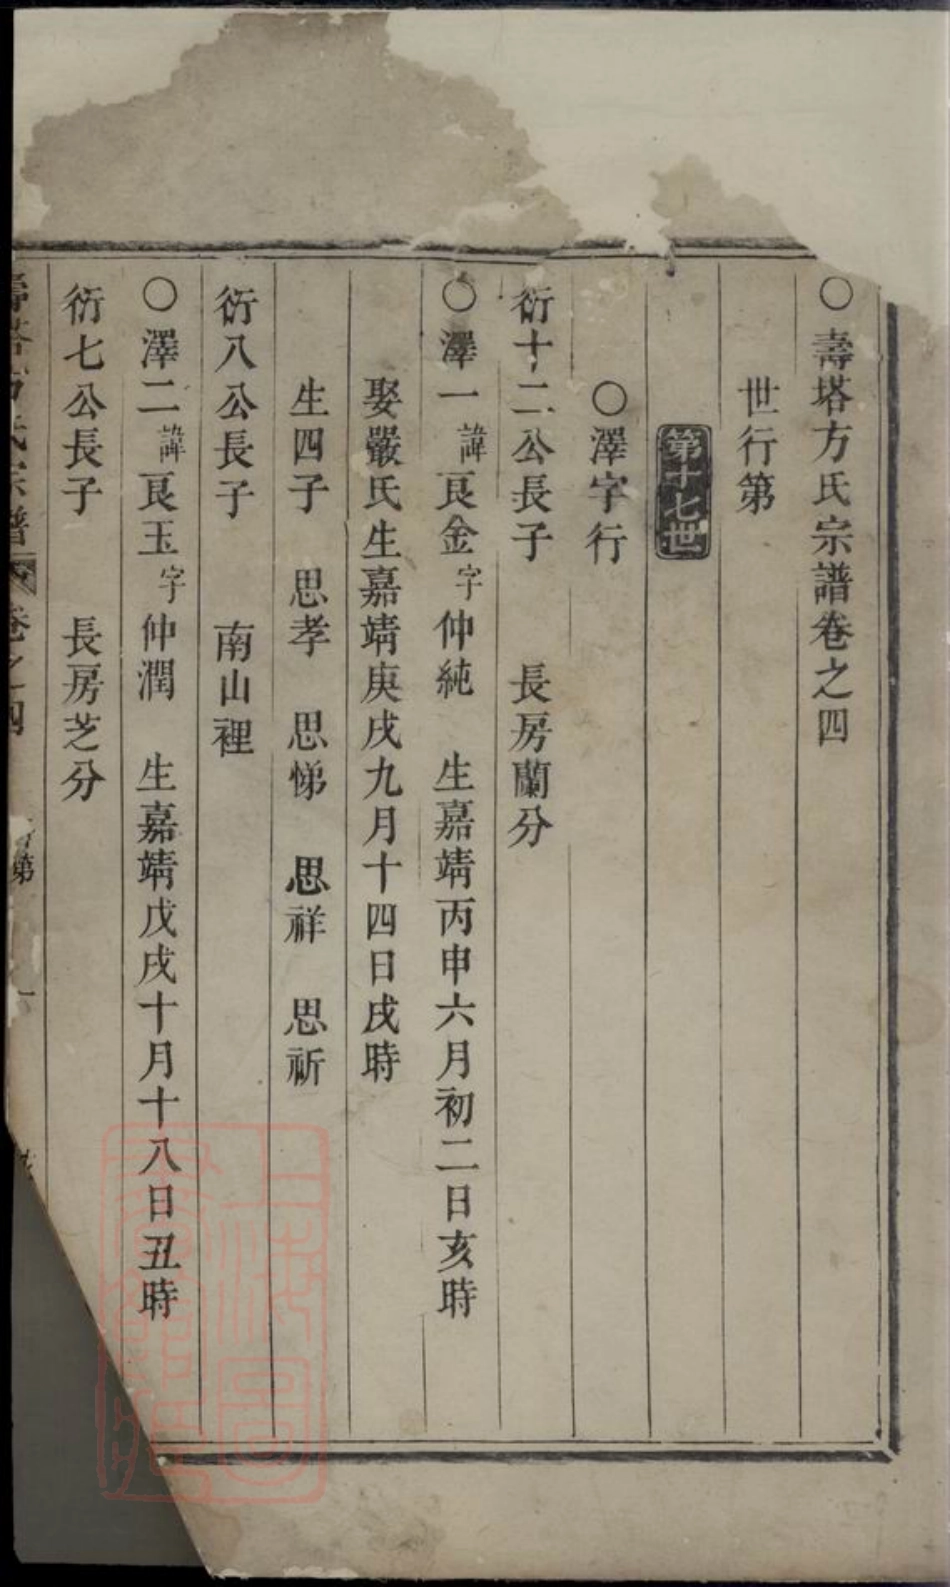 ○壽塔方氏宗譜卷之四
世行第
第十七世
○澤字行
衍十二公長子　長房蘭分
○澤一諱良金字仲純　生嘉靖丙申六月初二日亥時
娶嚴氏生嘉靖庚戌九月十四日戌時
生四子　思孝　思悌　思祥　思祈
衍八公長子　南山裡
○澤二諱良玉字仲潤　生嘉靖戊戌十月十八日丑時
衍七公長子　長房芝分
壽塔方氏宗譜　卷之四　第　一
上海圖書館藏